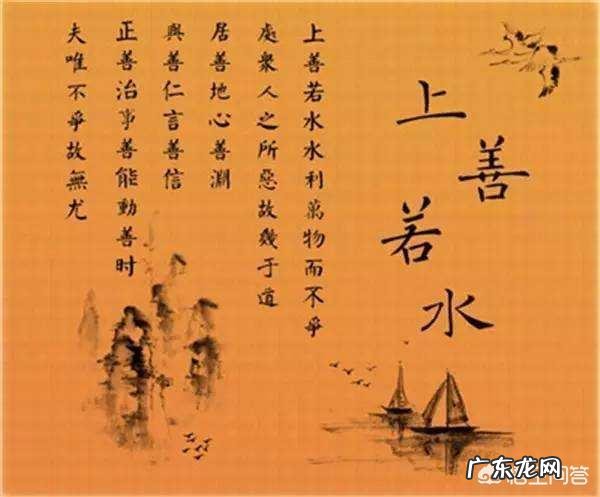 上善若水
上善若水水利萬物而不爭
處衆人之所惡故幾于道
居善地心善淵
與善仁言善信
正善治事善能動善时
夫唯不爭故無尤
广东龙网